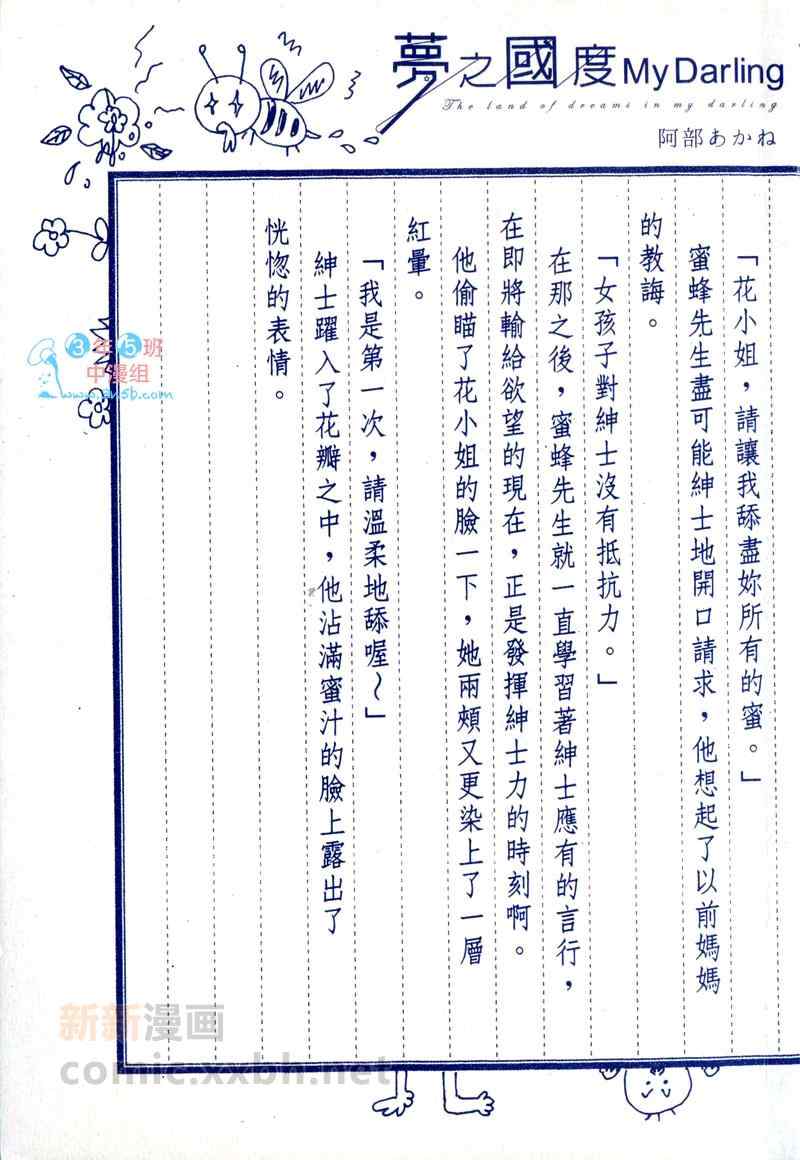 夢之國度 My Darling
The land of dreams in my darling
阿部あかね
「花小姐，請讓我舔盡妳所有的蜜。」
蜜蜂先生盡可能紳士地開口請求，他想起了以前媽媽
的教誨。
「女孩子對紳士沒有抵抗力。」
在那之後，蜜蜂先生就一直學習著紳士應有的言行，
在即將輸給欲望的現在，正是發揮紳士力的時刻啊。
他偷瞄了花小姐的臉一下，她兩頰又更染上了一層
紅暈。
「我是第一次，請溫柔地舔喔～」
紳士躍入了花瓣之中，他沾滿蜜汁的臉上露出了
恍惚的表情。
3年5班
中漫组
www.3n5b.com
新新漫画
comic.xxbh.net